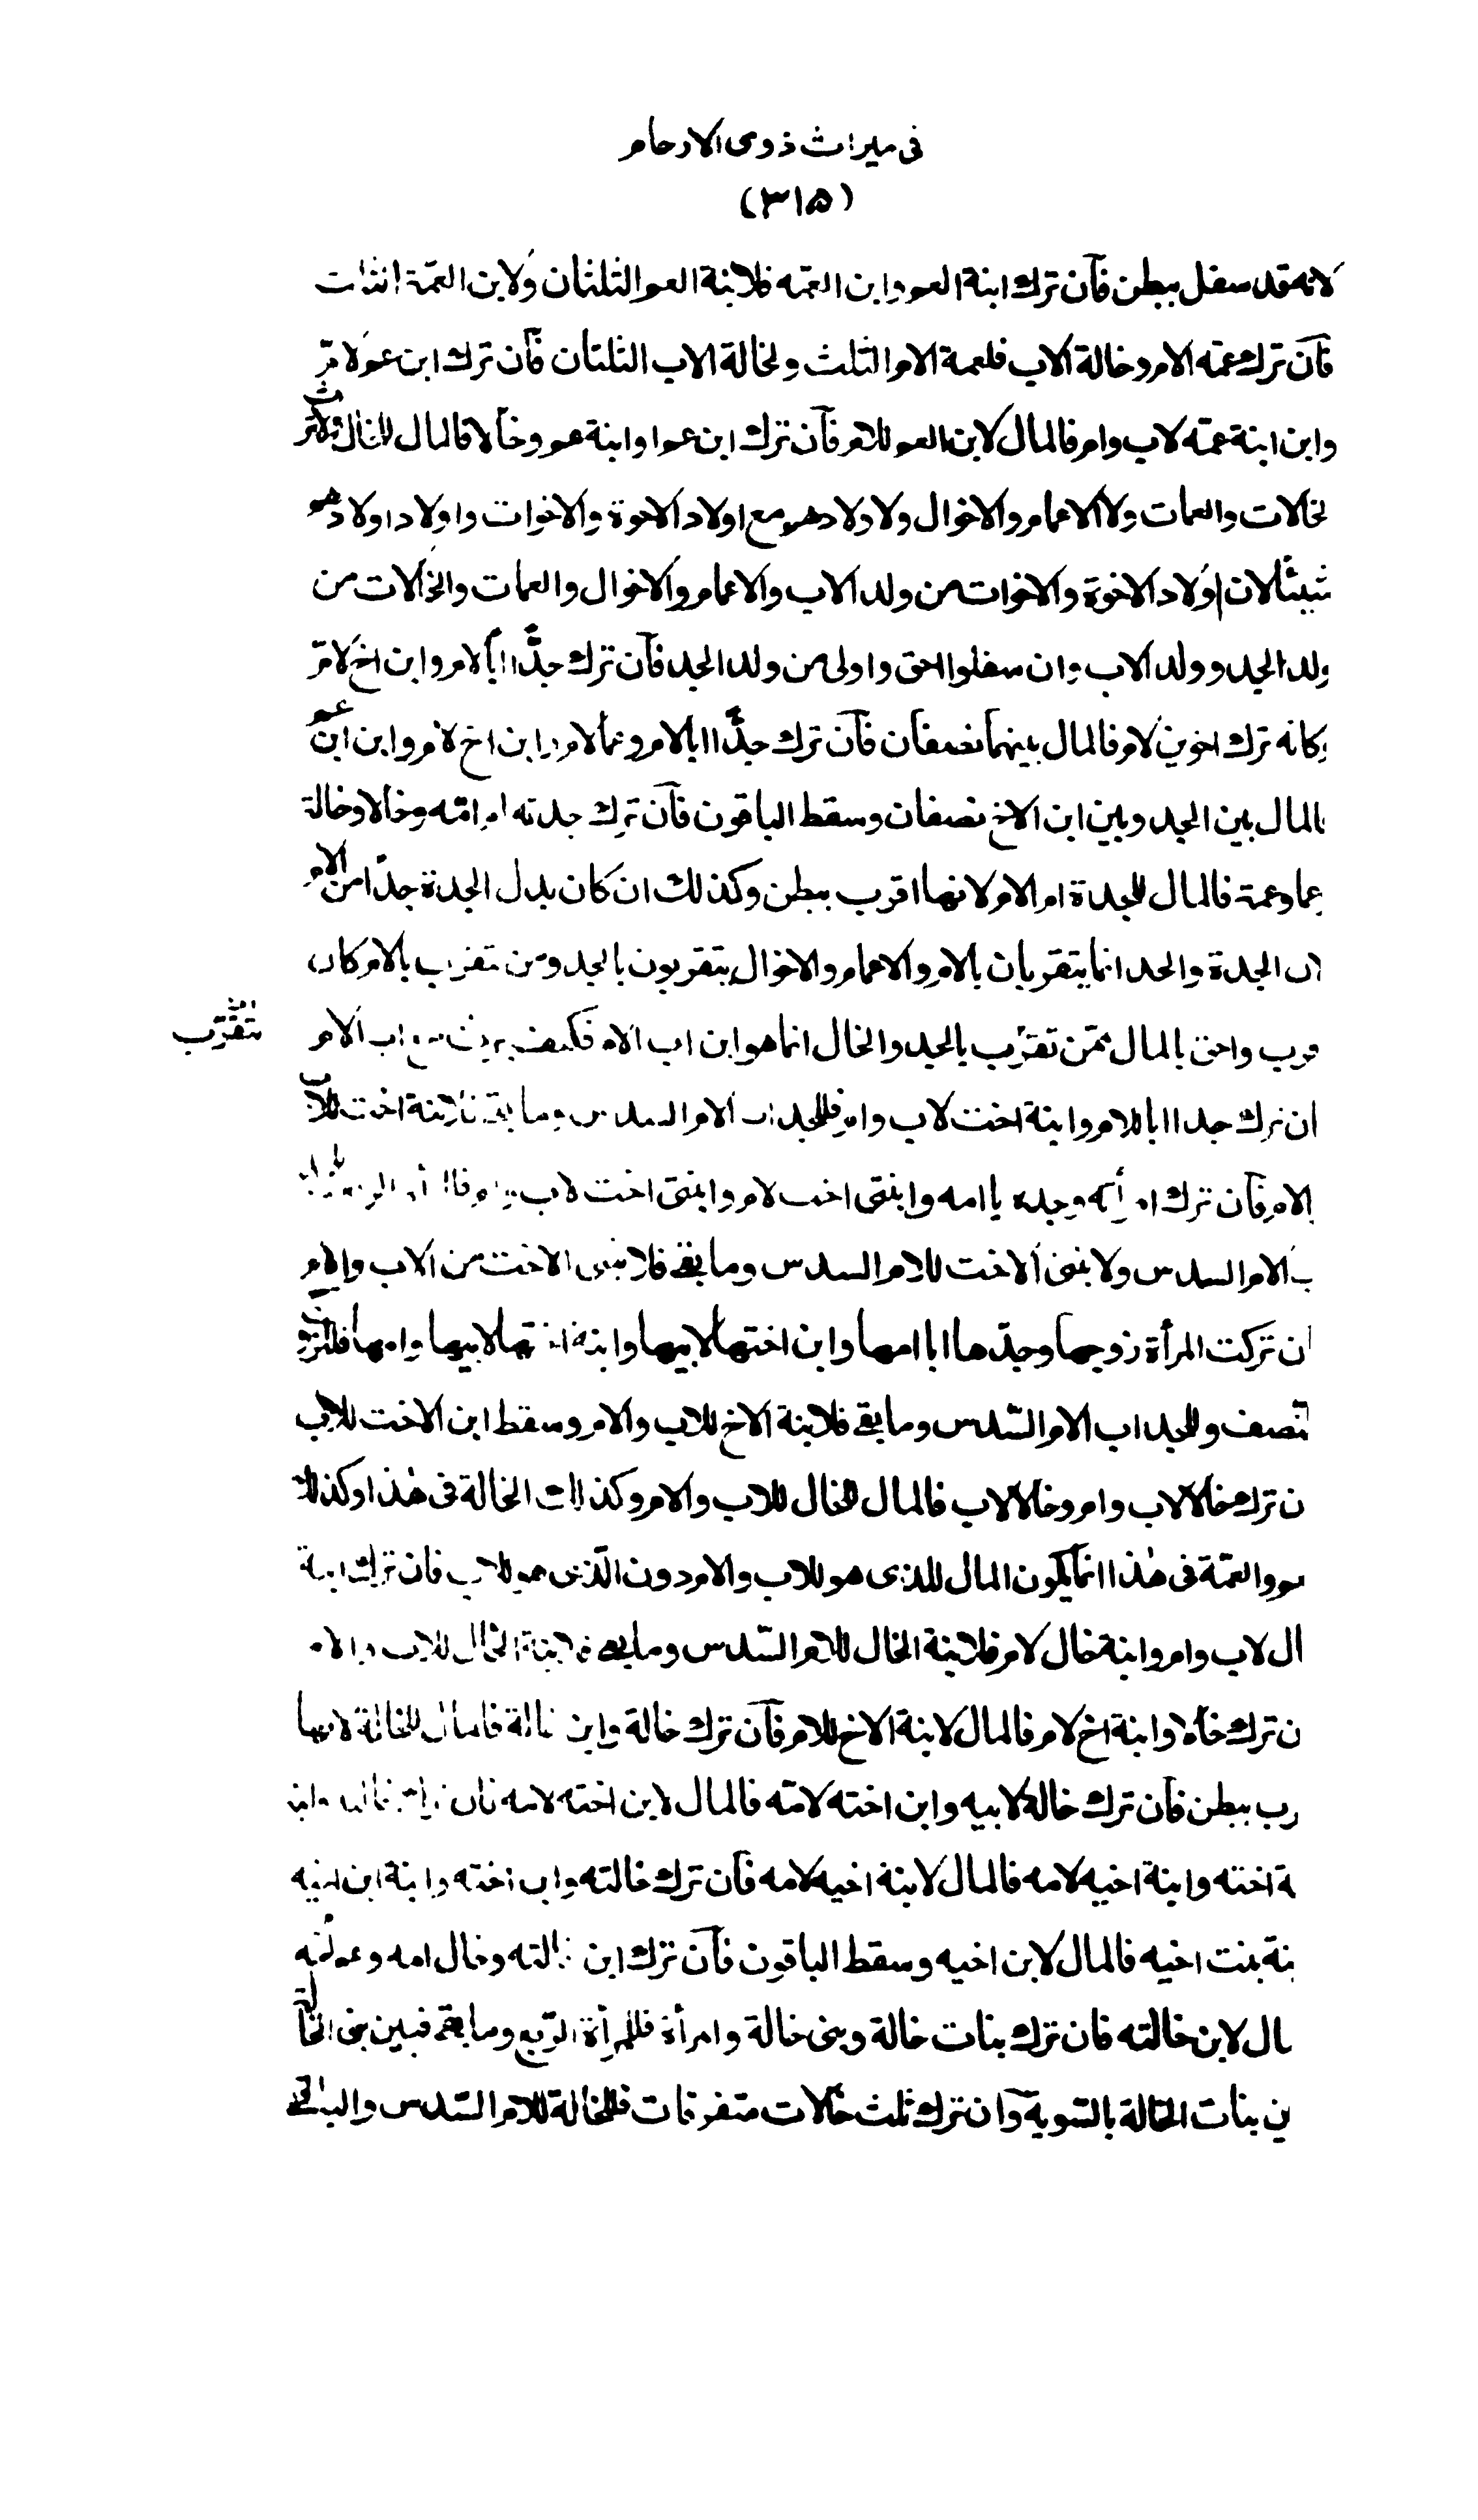 فى ميراث ذوى الارحام
(٣١٥)
لانه قد سفل ببطن فآن ترك ابنة العم وابن العمّه فلابنة العم الثلثان ولابن العمّة الثلث
فآن ترك عمّه الام وخالة الاب فلعمة الام الثلث ولخالة الاب الثلثان فآن ترك ابن عم لامّ
وابن ابنة عمّه لاب وام فالمال لابن العم للام فآن ترك ابن عم او ابنة عم وخالا فالمال للخال ولا ترث
لخالات والعمات ولا الاعمام والاخوال ولا اولادهم مع اولاد الاخوة والاخوات واولاد اولادهم
شيئا لان اولاد الاخوة والاخوات من ولد الاب والاعمام والاخوال والعمات والخالات من
ولد الجد وولد الاب وان سفلوا احق واولى من ولد الجد فآن ترك جدًّا ابا لام وابن اخ لامّ
وكانه ترك اخوين لام فالمال بينهما نصفان فآن ترك جدًّا ابا لام وعما لام وابن اخ لام وابن ابن عم
المال بين الجد وبين ابن الاخ نصفان وسقط الباقون فآن ترك جدته ام امّه وخالا وخالة
عما وعمة فالمال للجدة ام الام لانها اقرب ببطن وكذلك ان كان بدل الجدة جدّا من الام
لان الجدة والجد انما يتقربان بالام والاعمام والاخوال يتقربون بالجد ومن تقرب بالام كان
قرب واحق بالمال ممّن تقرّب بالجد والخال انما هو ابن اب الام فكيف يرث مع اب الام
يتقرّب
ان ترك جدا ابا للام وابنة اخت لاب وام فللجد اب الام السدس وما بقى فلابنة اخت للاب
الام فآن ترك ام امه وجده ابا امه وابنتى اخت لام وابنتى اخت لاب
ب الام السدس ولابنتى الاخت للام السدس وما بقى فلابنتى الاخت من الاب والام
ان تركت المرأة زوجها وجدّها ابا امها وابن اختها لابيها وابنة اختها لابيها وامها فللزوج
نصف وللجد اب الام السّدس وما بقى فلابنة الاخ للاب والام وسقط ابن الاخت للاب
ن ترك خالا لاب وام وخالا لاب فالمال للخال للاب والام وكذلك الخالة فى هٰذا وكذلك
عم والعمّة فى هٰذا انما يكون المال للذى هو للاب والام دون الّذى هو للاب فان ترك ابنة
ال لاب وام وابنة خال لام فلابنة الخال للام السّدس وما بقى فلابنة الخال للاب والام
ن ترك خالا وابنة اخ لام فالمال لابنة الاخ للام فآن ترك خالة وابن خالة فالمال للخالة لانها
رب ببطن فآن ترك خالة لابيه وابن اخته لامّه فالمال لابن اخته لامه فان
ة اخته وابنة اخيه لامه فالمال لابنة اخيه لامه فآن ترك خالته وابن اخته وابنة ابن اخيه
بنة بنت اخيه فالمال لابن اخيه وسقط الباقون فآن ترك ابن خالته وخال امه وعم امّه
مال لابن خالته فان ترك بنات خالة وبنى خالة وامرأة فللمرأة الرّبع وما بقى فبين بنى الخالة
ين بنات الخالة بالسّوية وآن ترك ثلث خالات متفرقات فللخالة للام السّدس والباقى